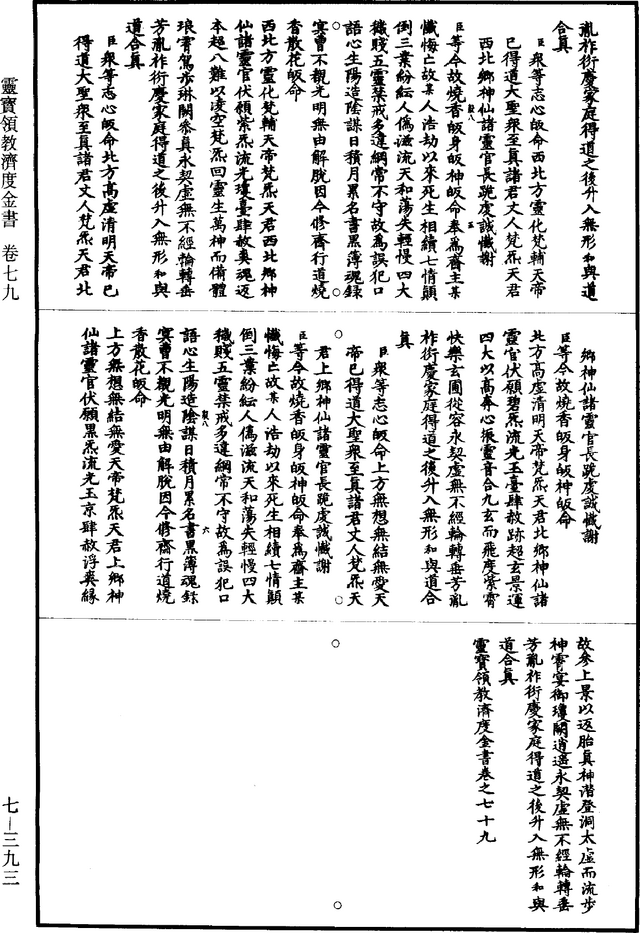 靈寶領教濟度金書 卷七九
七—三九三
胤祚衍慶家庭得道之後升入無形和與道
合真
臣衆等志心皈命西北方靈化梵輔天帝
已得道大聖衆至真諸君丈人梵炁天君
西北鄉神仙諸靈官長跪虔誠懺謝
臣等今故燒香皈身皈神皈命奉為齋主某
懺悔亡故某人浩劫以來死生相續七情顛
倒三業紛紜人偽滋流天和蕩失輕慢四大
穢賤五靈禁戒多違綱常不守故為誤犯口
語心生陽造陰謀日積月累名書黑簿魂錄
㝠曹不覩光明無由解脫因今修齋行道燒
香散花皈命
西北方靈化梵輔天帝梵炁天君西北鄉神
仙諸靈官伏願紫炁流光瓊臺肆赦奠魂返
本超八難以凌空梵炁回靈生萬神而備體
琅霄駕步琳闕叅真永契虛無不經輪轉垂
芳胤祚衍慶家庭得道之後升入無形和與
道合真
臣衆等志心皈命北方高虛清明天帝已
得道大聖衆至真諸君丈人梵炁天君北
鄉神仙諸靈官長跪虔誠懺謝
臣等今故燒香皈身皈神皈命
北方高虛清明天帝梵炁天君北鄉神仙諸
靈官伏願碧炁流光玉臺肆赦跡超玄景運
四大以高奉心振靈音合九玄而飛度紫霄
快樂玄圃從容永契虛無不經輪轉垂芳胤
祚衍慶家庭得道之後升入無形和與道合
真
臣衆等志心皈命上方無想無結無愛天
帝已得道大聖衆至真諸君丈人梵炁天
君上鄉神仙諸靈官長跪虔誠懺謝
臣等今故燒香皈身皈神皈命奉為齋主某
懺悔亡故某人浩劫以來死生相續七情顛
倒三業紛紜人偽滋流天和蕩失輕慢四大
穢賤五靈禁戒多違綱常不守故為誤犯口
語心生陽造陰謀日積月累名書黑簿魂錄
㝠曹不覩光明無由解脫因今修齋行道燒
香散花皈命
上方無想無結無愛天帝梵炁天君上鄉神
仙諸靈官伏願黑炁流光玉京肆赦浮喪緣
故參上景以返胎真神潛登洞太虛而流步
神霄宴御瓊闕逍遥永契虛無不經輪轉垂
芳胤祚衍慶家庭得道之後升入無形和與
道合真
靈寶領教濟度金書卷之七十九